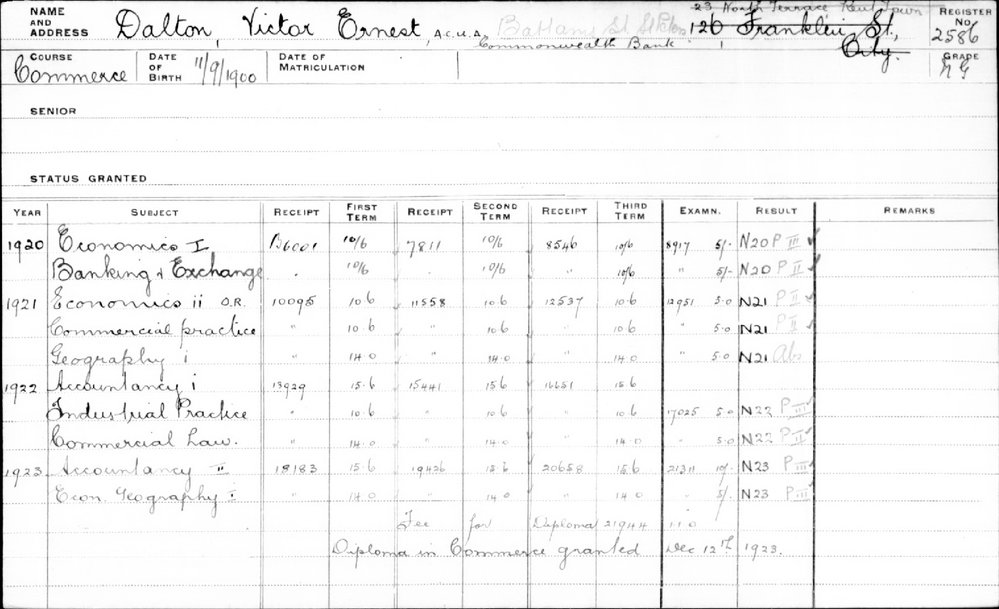 NAME AND ADDRESS Dalton, Victor Ernest, A.C.U.A. 23 North Terrace Kent Town 120 Franklin St, City. Commonwealth Bank REGISTER No 2586
COURSE Commerce DATE OF BIRTH 11/9/1900 DATE OF MATRICULATION GRADE
SENIOR
STATUS GRANTED
YEAR SUBJECT RECEIPT FIRST TERM RECEIPT SECOND TERM RECEIPT THIRD TERM EXAMN. RESULT REMARKS
1920 Economics I B6001 10/6 7811 10/6 8546 10/6 8917 5/- N20 P III ✓
Banking & Exchange " 10/6 " 10/6 " 10/6 " 5/- N20 P II ✓
1921 Economics ii O.R. 10095 10 6 11558 10 6 12537 10 6 12951 5.0 N21 P II ✓
Commercial practice " 10 6 " 10 6 " 10 6 " 5.0 N21 P II ✓
Geography i " 14 0 " 14 0 " 14 0 " 5.0 N21 Abs
1922 Accountancy i 13929 15.6 15441 15 6 16651 15 6
Industrial Practice " 10 6 " 10 6 " 10 6 17025 5.0 N22 P III ✓
Commercial Law. " 14 0 " 14 0 " 14 0 " 5.0 N22 P II ✓
1923 Accountancy II 18183 15.6 19426 15 6 20658 15 6 21311 10/- N23 P III ✓
Econ. Geography I " 14 0 " 14 0 " 14 0 " 5/- N23 P III ✓
Fee for Diploma 21944 1.1.0
Diploma in Commerce granted Dec 12th 1923.